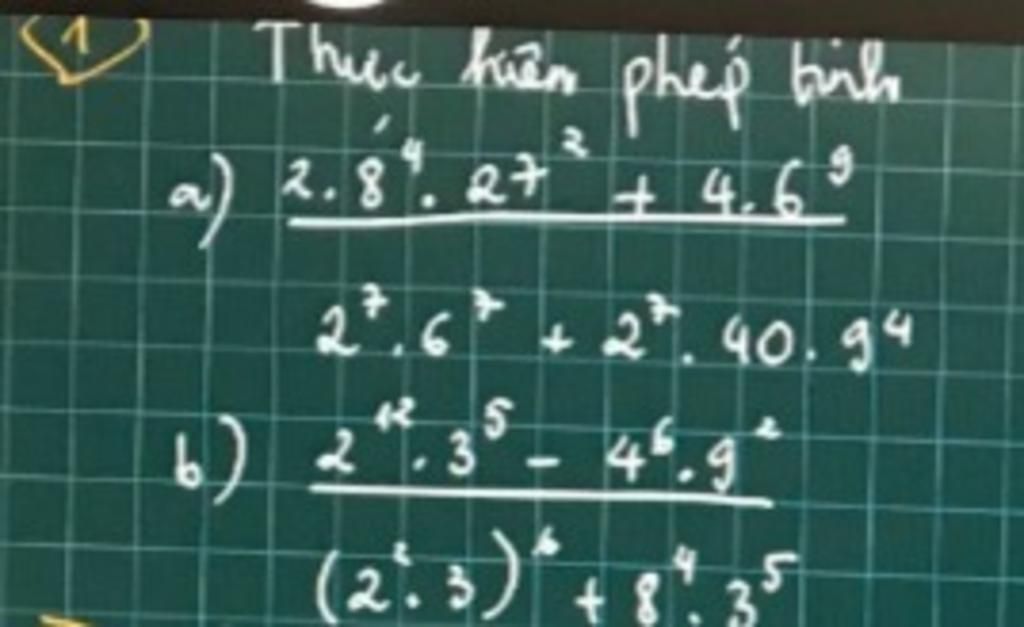 1 Thực hiện phép tính
a) 2.8⁴.27² + 4.6⁹
2⁷.6⁷ + 2⁷.40.9⁴
b) 2¹².3⁵ - 4⁶.9²
(2².3)⁶ + 8⁴.3⁵